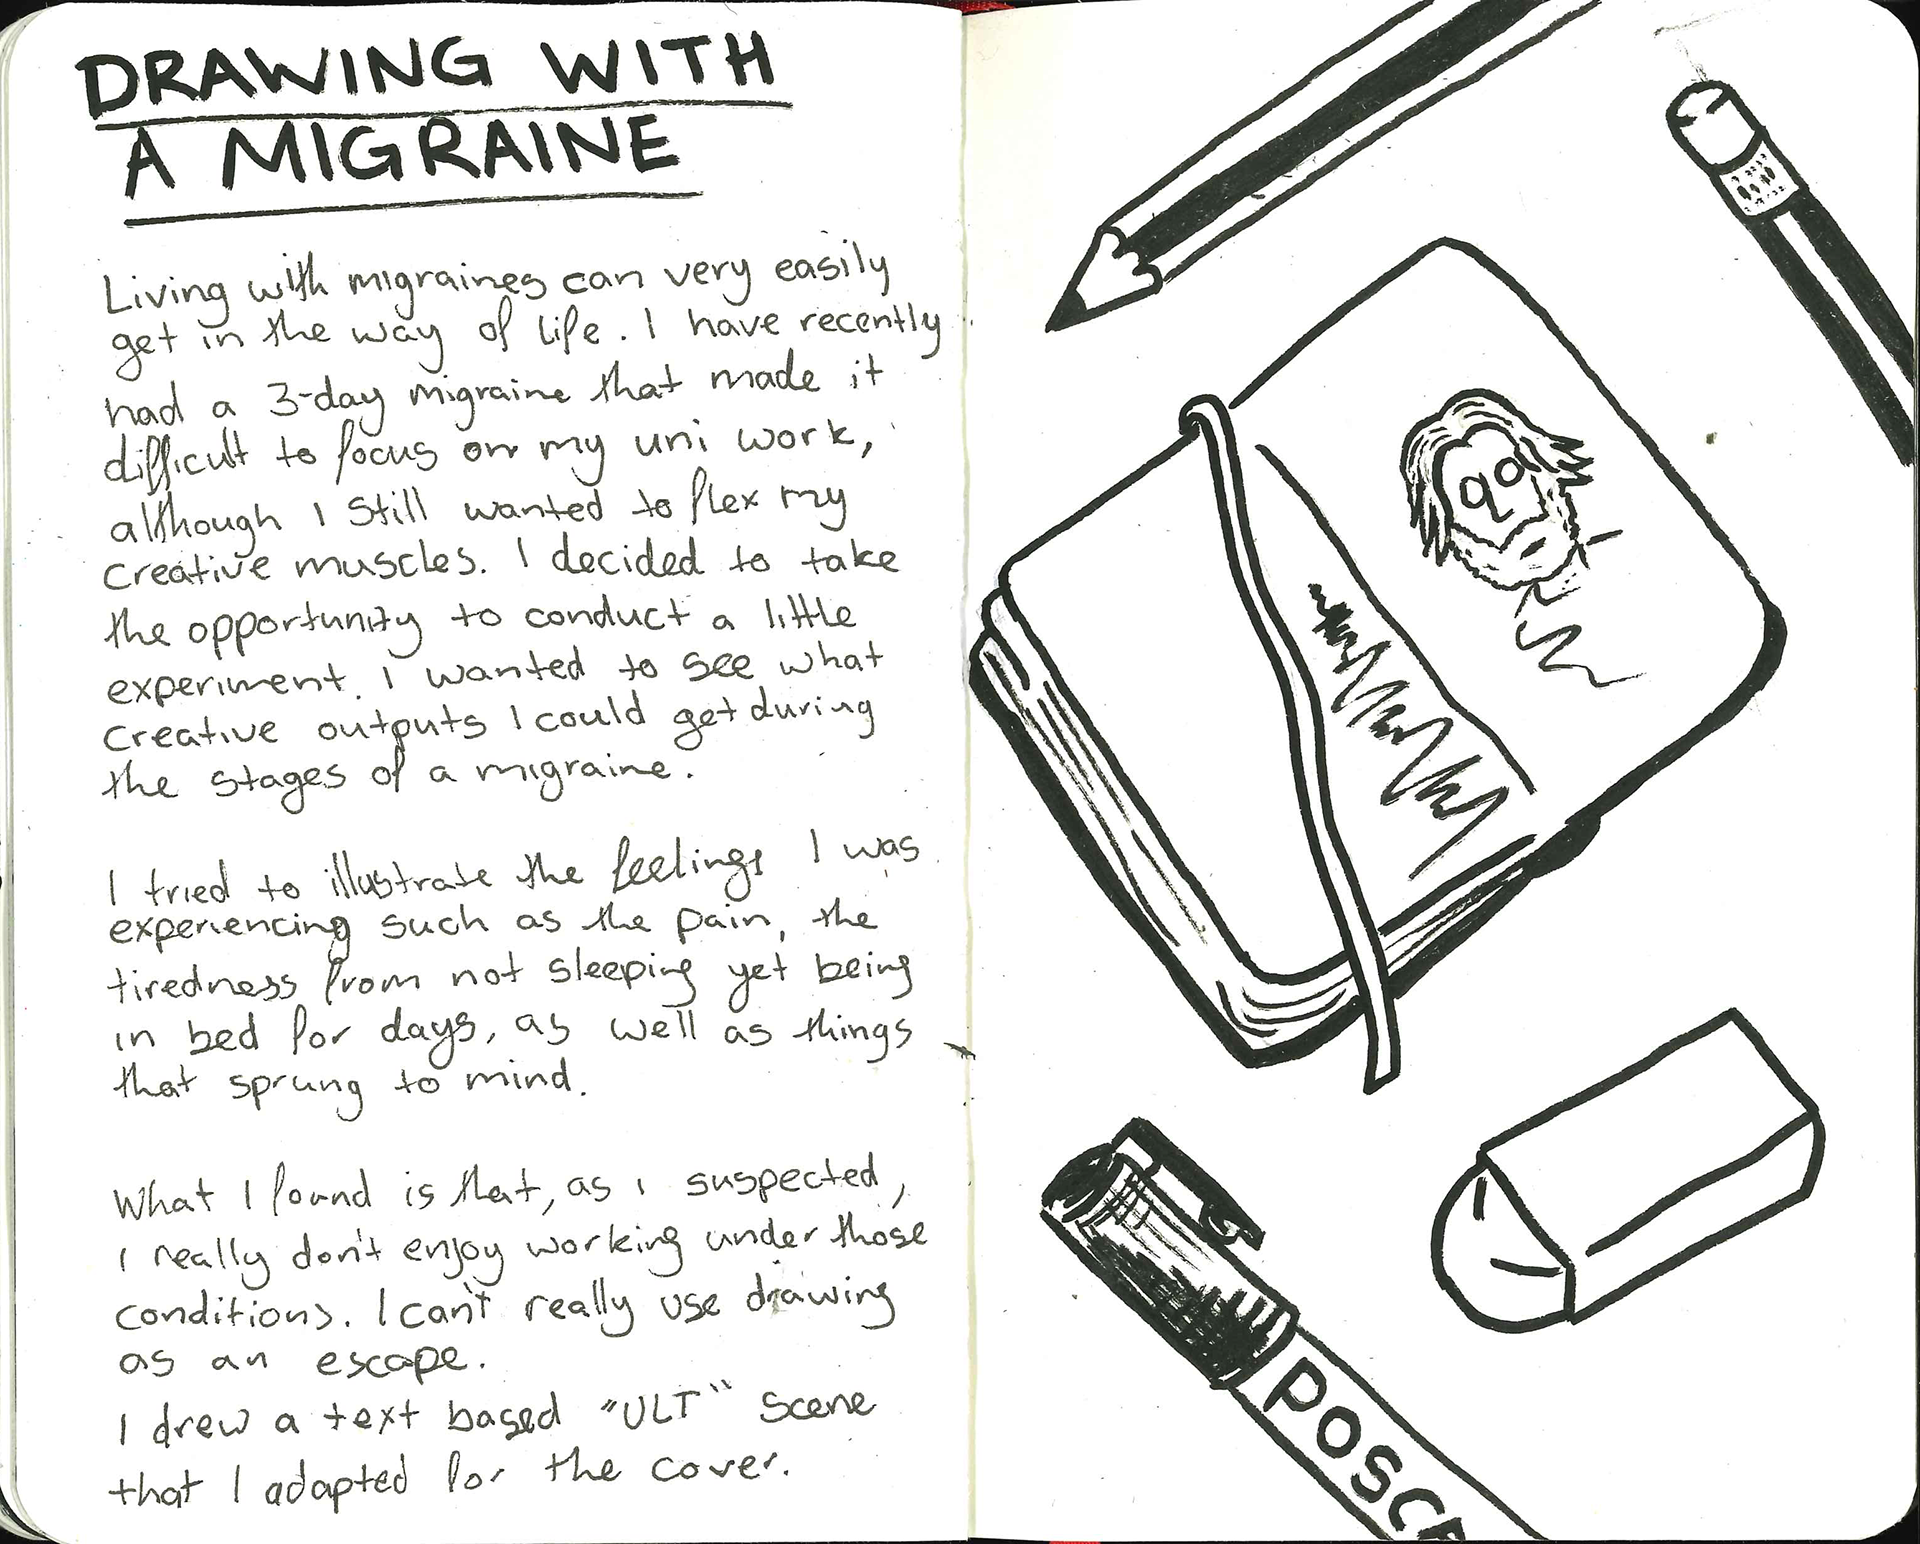 DRAWING WITH
A MIGRAINE
Living with migraines can very easily
get in the way of life. I have recently
had a 3-day migraine that made it
difficult to focus on my uni work,
although I Still wanted to flex my
creative muscles. I decided to take
the opportunity to conduct a little
experiment. I wanted to see what
creative outputs I could get during
the stages of a migraine.
I tried to illustrate the feelings I was
experiencing such as the pain, the
tiredness from not sleeping yet being
in bed for days, as well as things
that sprung to mind.
What I found is that, as I suspected,
I really don't enjoy working under those
conditions. I can't really use drawing
as an escape.
I drew a text based "ULT" Scene
that I adapted for the cover.
POSCA